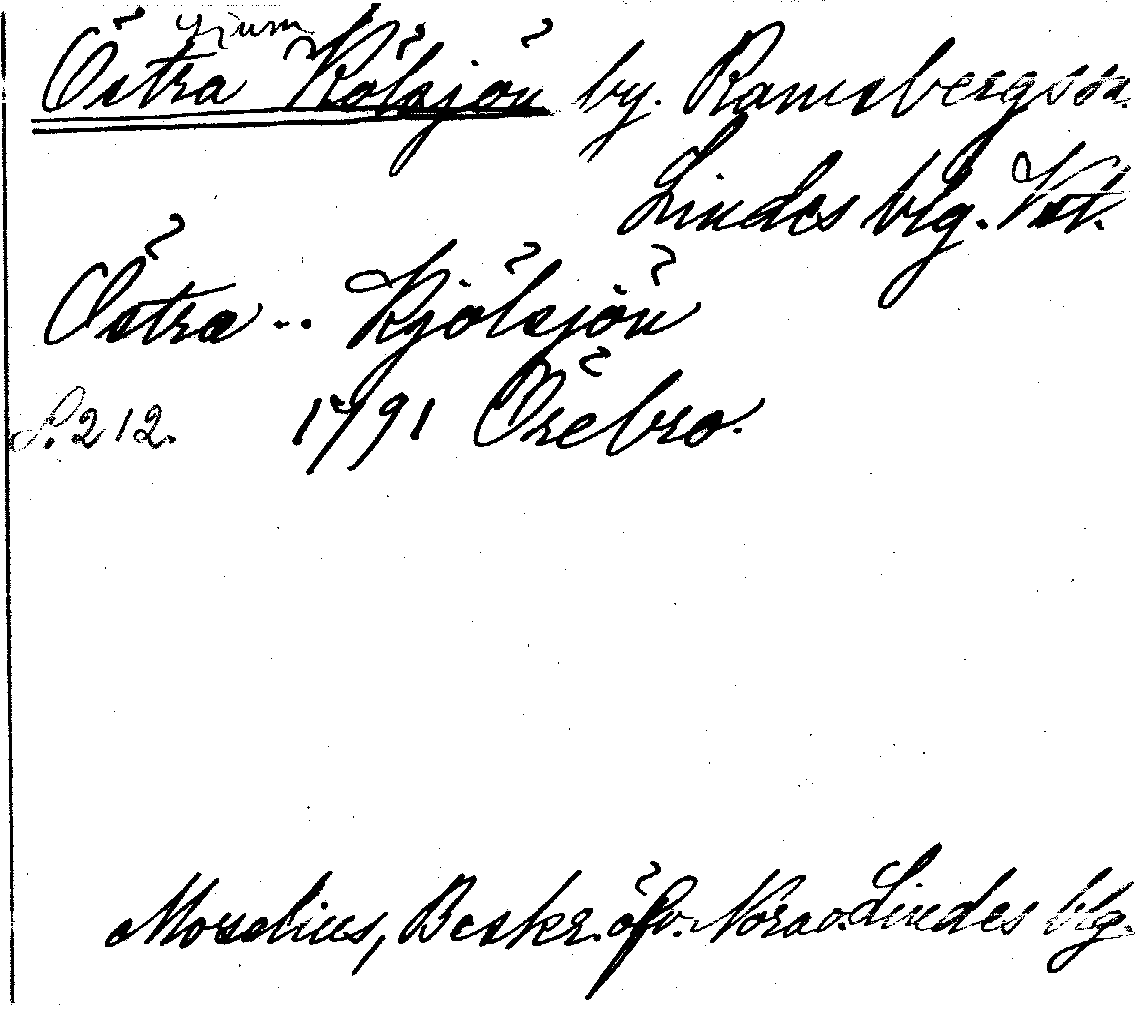 Östra Kölsjön by. Ramsbergs sn.
Lindes blg. Vstm.
Östra .. Kjölsjön
S. 212. 1791 Örebro.
Moselius, Beskr. öfv. Nora o. Lindes blg.